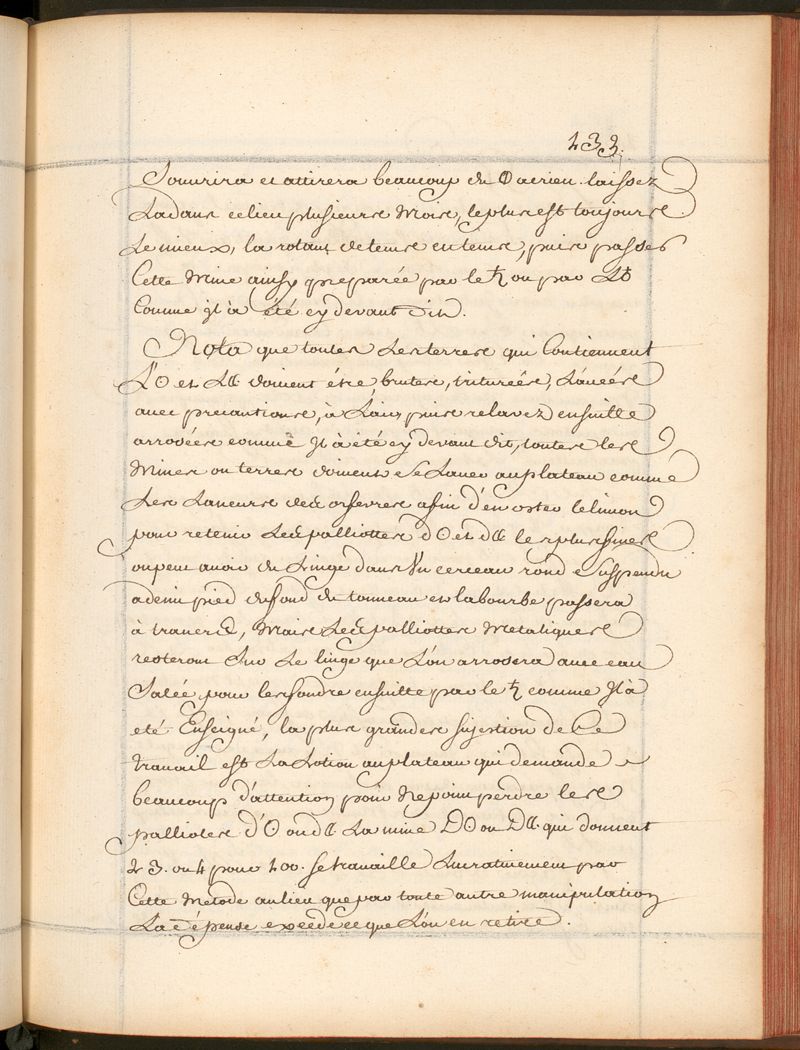 133.
Souurira et attirera beaucoup du aerien. laissez
La dans ce lieu plusieurs Mois, le plus est toujours
Le mieux, la rotant de tems en tems, puis passes
Cette Mine ainsy preparée par le ♄ ou par
Comme jl à été cy devant dit.
Nota que toutes Les terres qui Contiennent
L'☉ et L☾ doiuent étre brutes, triturées, Lauées
auec precautions, à L'au, puis relavez ensuitte
arrosées comme Jl à été cy devant dit, toutes les
Mines ou terres doiuent se Lauer au plateau comme
Les Laueurs des orfevres afin d'en oster le limon
pour retenir Les palliottes d'☉ et d☾ les plus fines
on peut auoir du Linge dans Un cerceau rond Suspendu
a demi pied du fond du tonneau et la bourbe passera
à trauers, Mais Les palliottes Metaliques
resteront Sur Le linge que L'on arrosera auec eau
Salée pour les fondre ensuitte par le ♄ comme Jl à
eté Enseigné, la plus grande sujestion de Ce
travail est La Lotion au plateau qui demande
beaucoup d'attention pour Ne point perdre les
palliotes d'☉ ou d☾ La mine D☉ ou D☾. qui donnent
2 3. ou 4 pour 100. se travaille Lucratiuement par
Cette Metode au lieu que par toute autre manipulation
La dépense excede ce que L'on en retire.